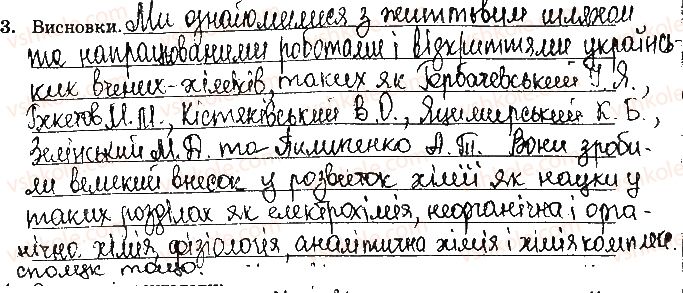 3. Висновки. Ми ознайомилися з життєвим шляхом
та напрацьованими роботами і відкриттями українсь-
ких вчених-хіміків, таких як Горбачевський І.Я.,
Бекетов М.М., Кістяківський В.О., Яцимирський К.Б.,
Зелінський М.Д. та Пилипенко А.Т. Вони зроби-
ли великий внесок у розвиток хімії як науки у
таких розділах як електрохімія, неорганічна і орга-
нічна хімія, фізіологія, аналітична хімія і хімія комплекс.
сполук тощо.